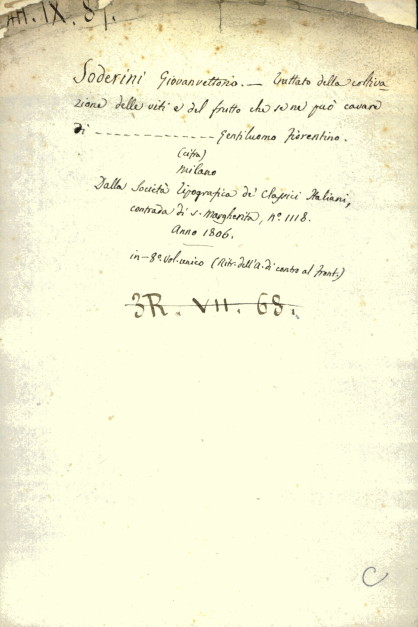 IX. 87.
Soderini Giovanvettorio. — trattato della coltiva
zione delle viti e del frutto che se ne può cavare
Di ------------- Gentiluomo Fiorentino.
(cifra)
Milano
Dalla Società Tipografica de' Classici Italiani,
contrada di s. Margherita, n° 1118.
Anno 1806.
in-8°. vol. unico (Ritr. dell'A. di contro al front.)
3R. VII. 68.
C